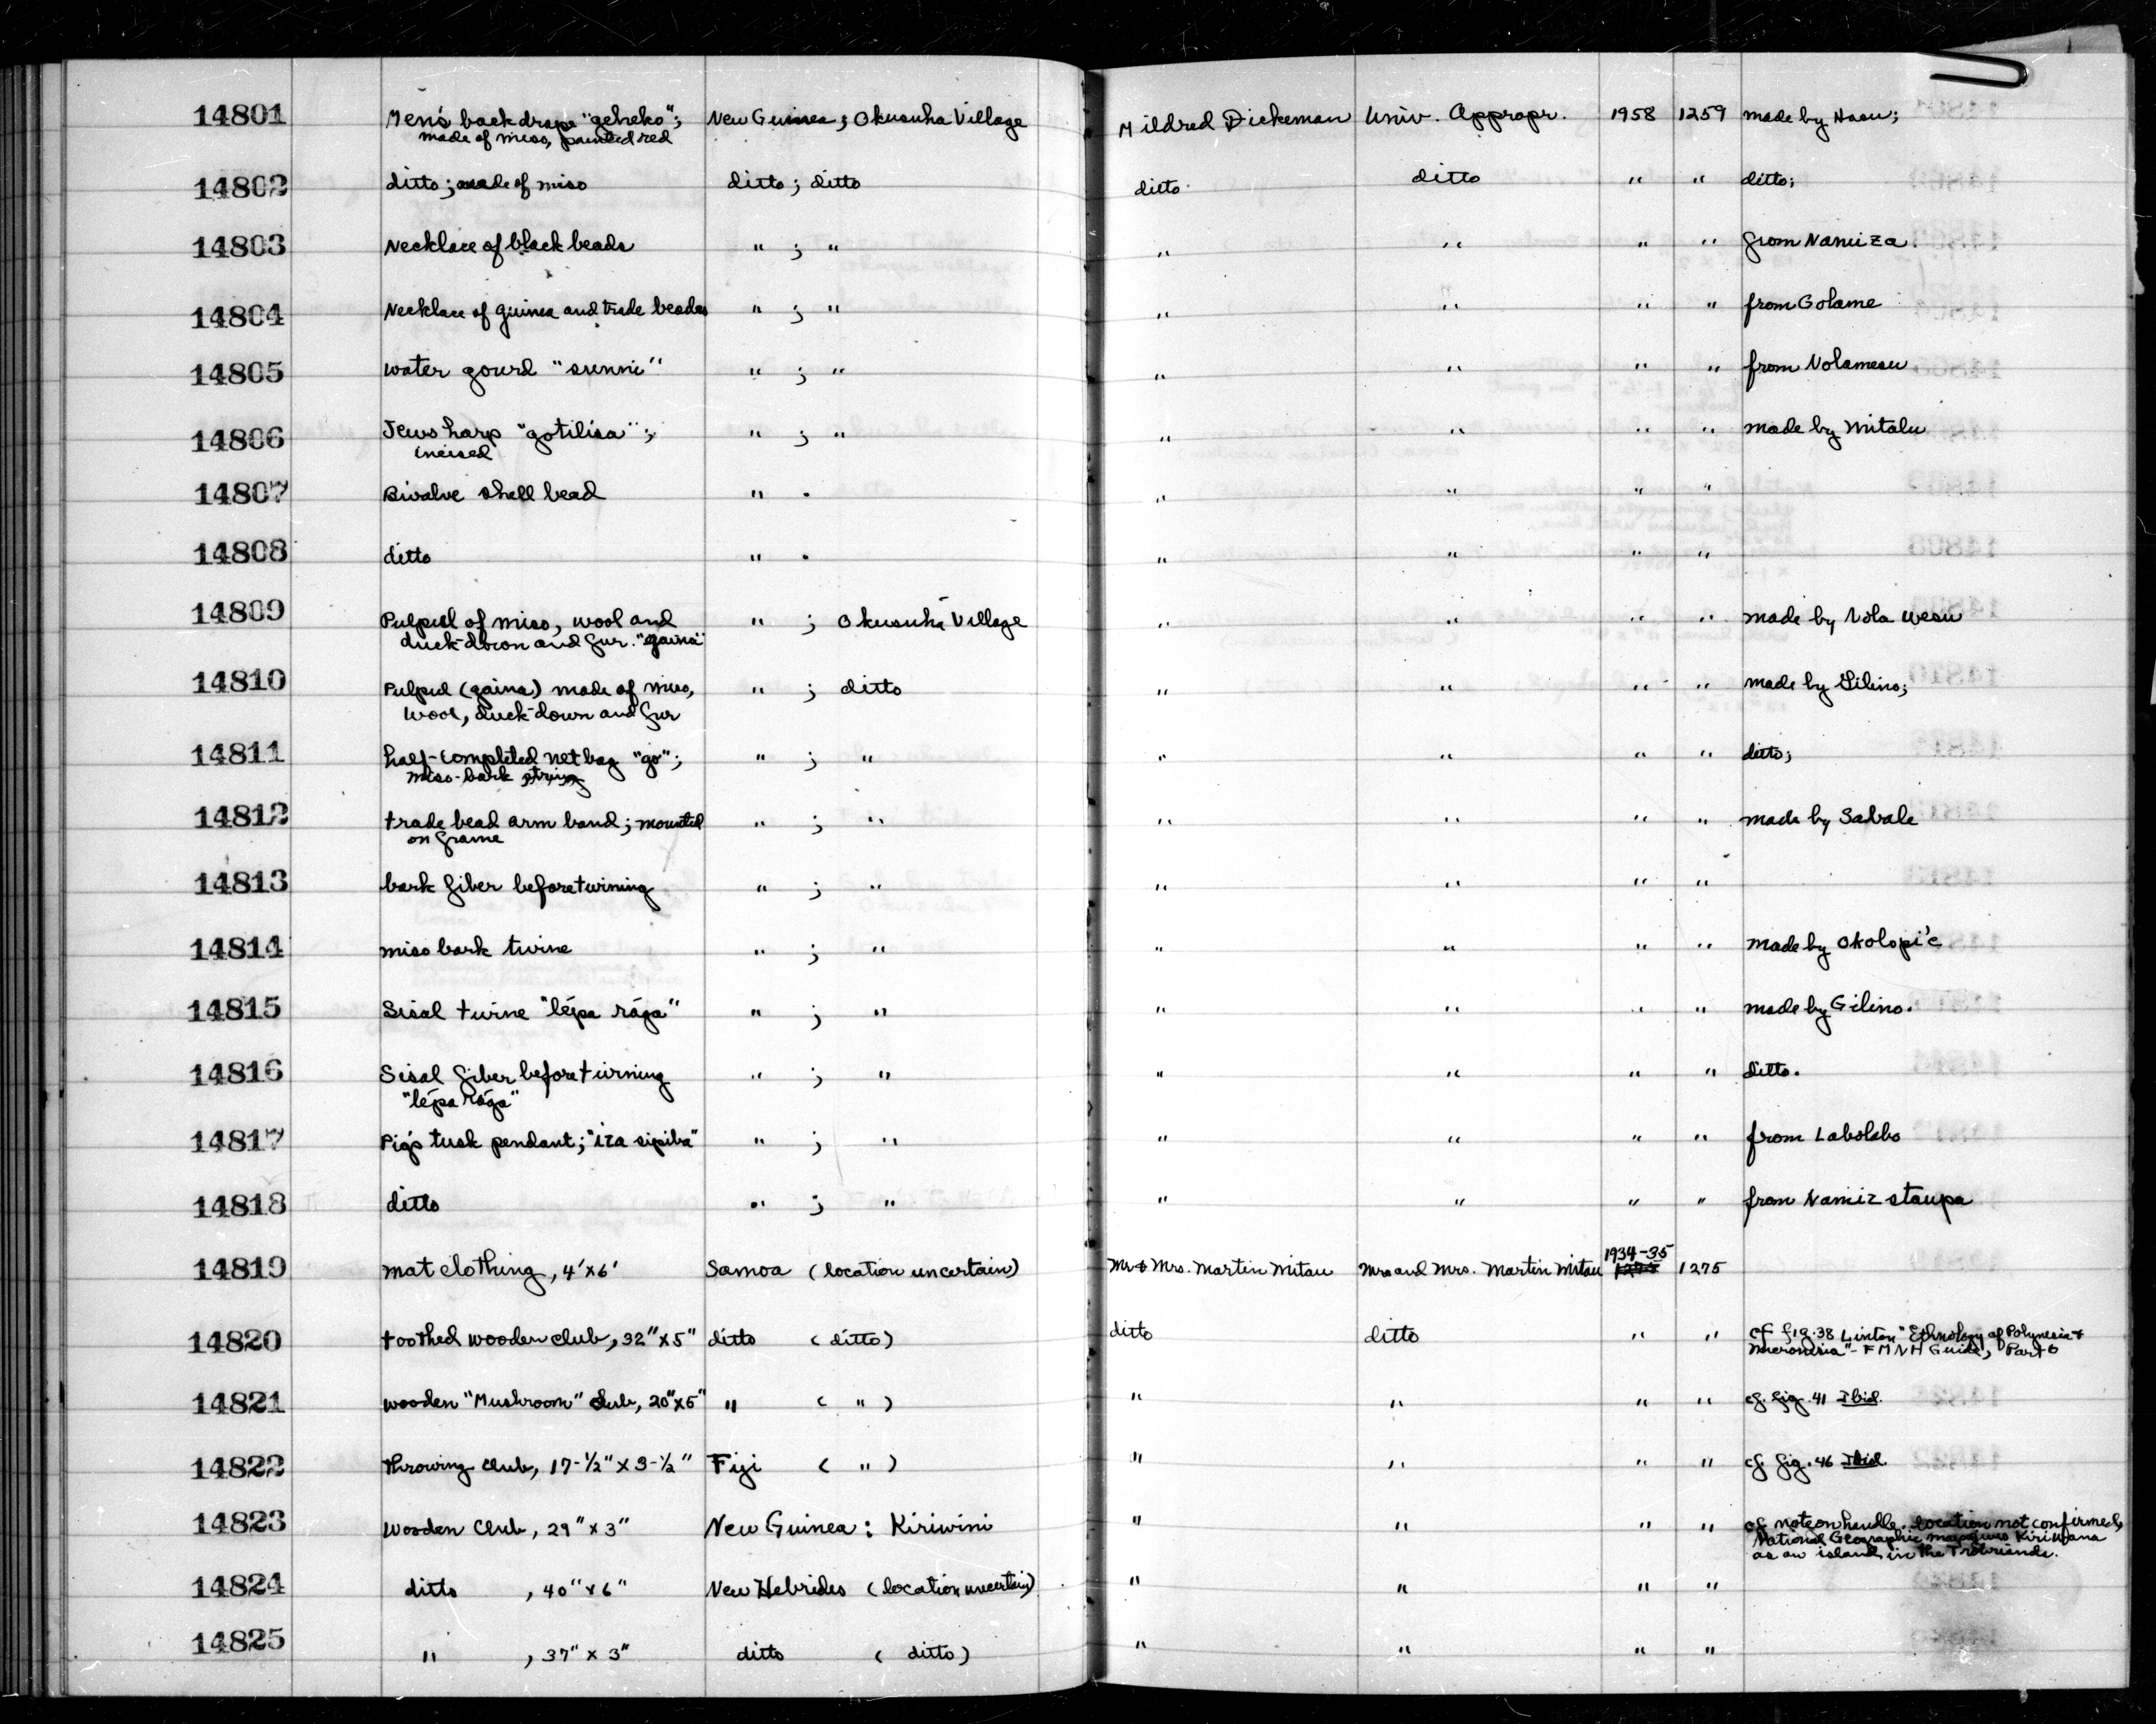 14801 Men's back drape "geheko"; New Guinea; Okusuha Village Mildred Dickeman Univ. Appropr. 1958 1259 made by
made of miso, painted red
14802 ditto; made of miso ditto; ditto ditto ditto " " ditto;
14803 Necklace of black beads " ; " " " " " from Namiza
14804 Necklace of guinea and trade beads " ; " " " " " from Golame
14805 water gourd "sunni" " ; " " " " " from Nolamesu
14806 Jews harp "gotilisa"; " ; " " " " " made by Mitalu
incised
14807 Bivalve shell bead " . " " " "
14808 ditto " . " " " "
14809 Pulpul of miso, wool and " ; Okusuha Village " " " " made by Nola Wesu
duck-down and fur. "gaina"
14810 Pulpul (gaina) made of miso, " ; ditto " " " " made by Gilino;
wool, duck-down and fur
14811 half-completed net bag "go"; " ; " " " " " ditto;
miso-bark string
14812 trade bead arm band; mounted " ; " " " " " made by Sabale
on frame
14813 bark fiber before twining " ; " " " " "
14814 miso bark twine " ; " " " " " made by Okolopi'e
14815 Sisal twine "lépa rága" " ; " " " " " made by Gilino.
14816 Sisal fiber before twining " ; " " " " " ditto.
"lépa rága"
14817 Pigs tusk pendant; "iza sipiba" " ; " " " " " from Labolabo
14818 ditto " ; " " " " " from Namiz staupa
14819 mat clothing, 4'x6' Samoa (location uncertain) Mr & Mrs. Martin Mitau Mrs and Mrs. Martin Mitau 1934-35 1275
14820 toothed wooden club, 32"x5" ditto (ditto) ditto ditto " " cf fig. 38 Linton "Ethnology of Polynesia &
Micronesia" - FMNH Guide, Part 6
14821 wooden "Mushroom" club, 20"x5" " ( " ) " " " " cf. fig. 41 Ibid.
14822 throwing club, 17-½" x 3-½" Fiji ( " ) " " " " cf. fig. 46 Ibid.
14823 Wooden Club, 29" x 3" New Guinea: Kiriwini " " " " cf note on handle. location not confirmed,
National Geographic map gives Kiriwana
as an island in the Trobriands.
14824 ditto , 40" x 6" New Hebrides (location uncertain) " " " "
14825 " , 37" x 3" ditto ( ditto) " " " "